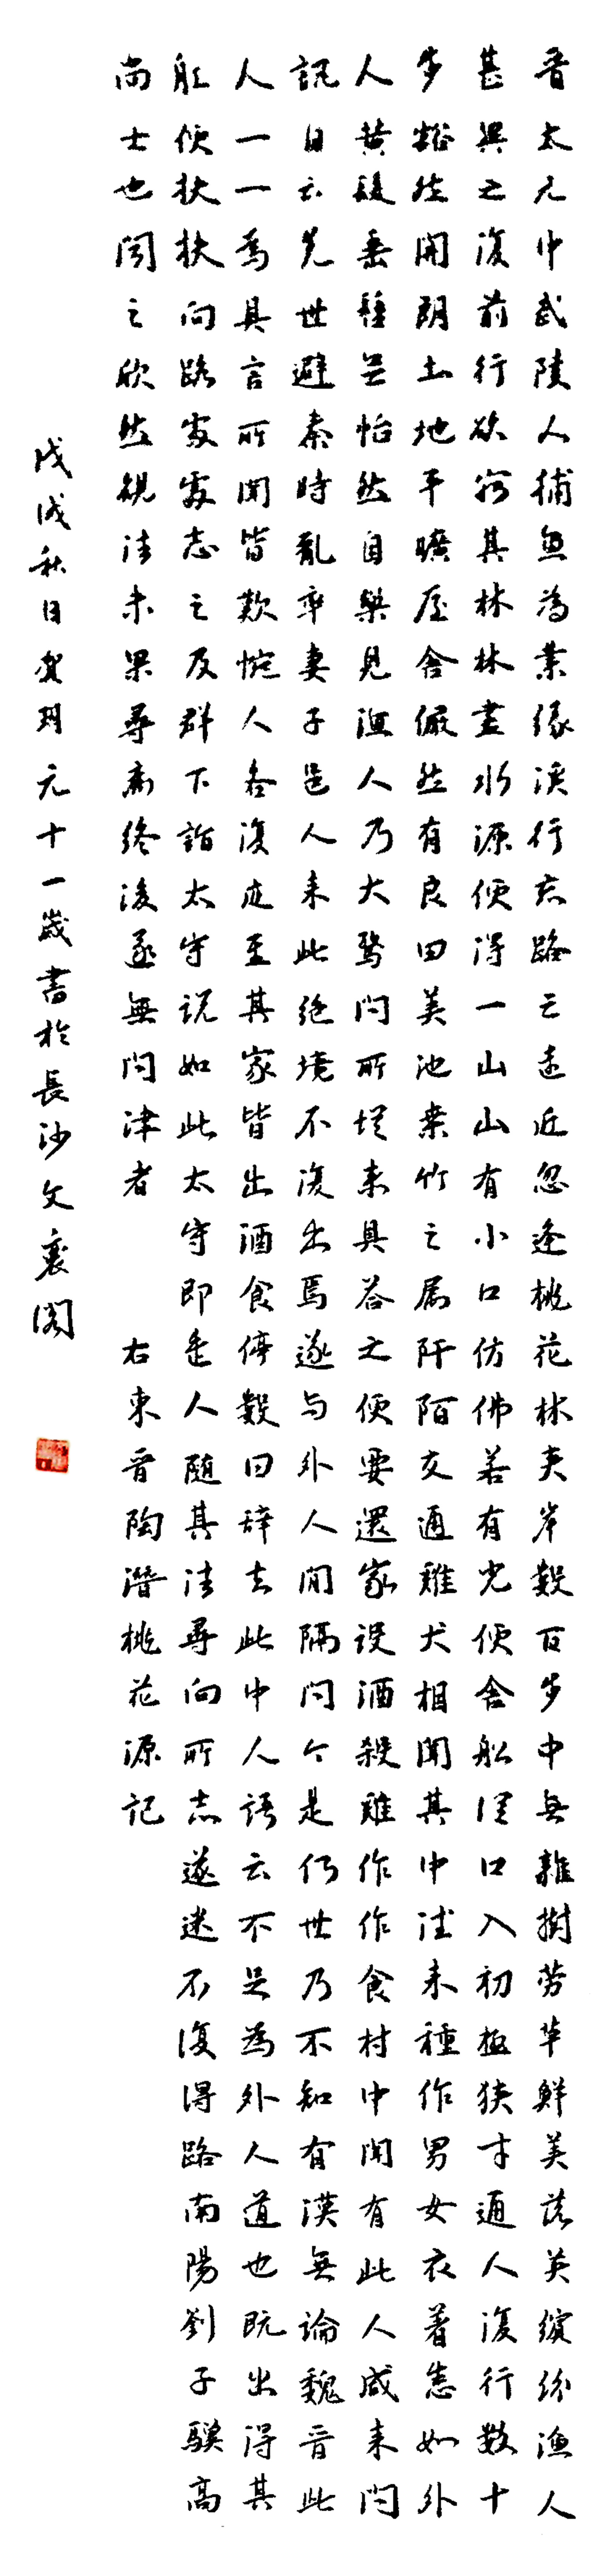 晋太元中武陵人捕魚為業緣溪行忘路之遠近忽逢桃花林夹岸數百步中無雜樹芳草鮮美落英繽紛漁人
甚異之復前行欲窮其林林盡水源便得一山山有小口仿佛若有光便舍船從口入初極狹才通人復行數十
步豁然開朗土地平曠屋舍儼然有良田美池桑竹之屬阡陌交通雞犬相聞其中往来種作男女衣著悉如外
人黄髮垂髫並怡然自樂見漁人乃大驚問所從来具答之便要還家設酒殺雞作作食村中聞有此人咸来問
訊自云先世避秦時亂率妻子邑人来此絶境不復出焉遂与外人間隔問今是何世乃不知有漢無論魏晋此
人一一為具言所聞皆歎惋人各復延至其家皆出酒食停數日辞去此中人語云不足為外人道也既出得其
船便扶扶向路處處志之及群下詣太守説如此太守即遣人随其往尋向所志遂迷不復得路南陽劉子驥高
尚士也聞之欣然規往未果尋病終後遂無問津者 右東晋陶潛桃花源記
戊戌秋日賀玥元十一歲書於長沙文襄閣